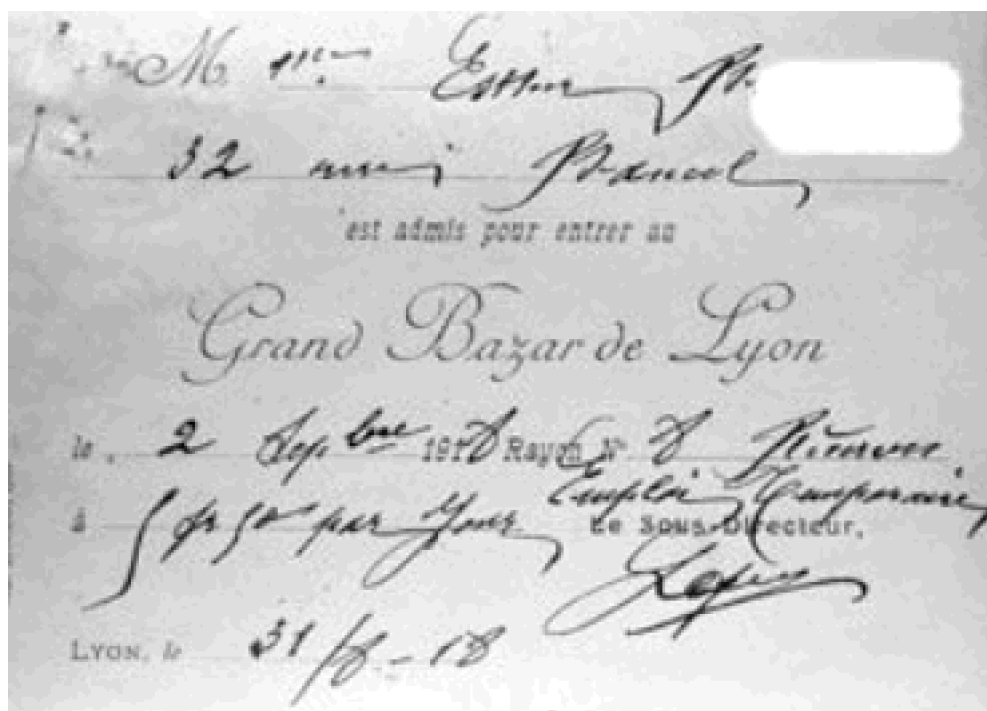 M lle Esther
32 rue
est admis pour entrer au
Grand Bazar de Lyon
le 2 Sepbre 1918 Rayon No 8
Emploi Temporaire
à 5 fr 50 par Jour Le Sous-Directeur,
LYON, le 31/8-18